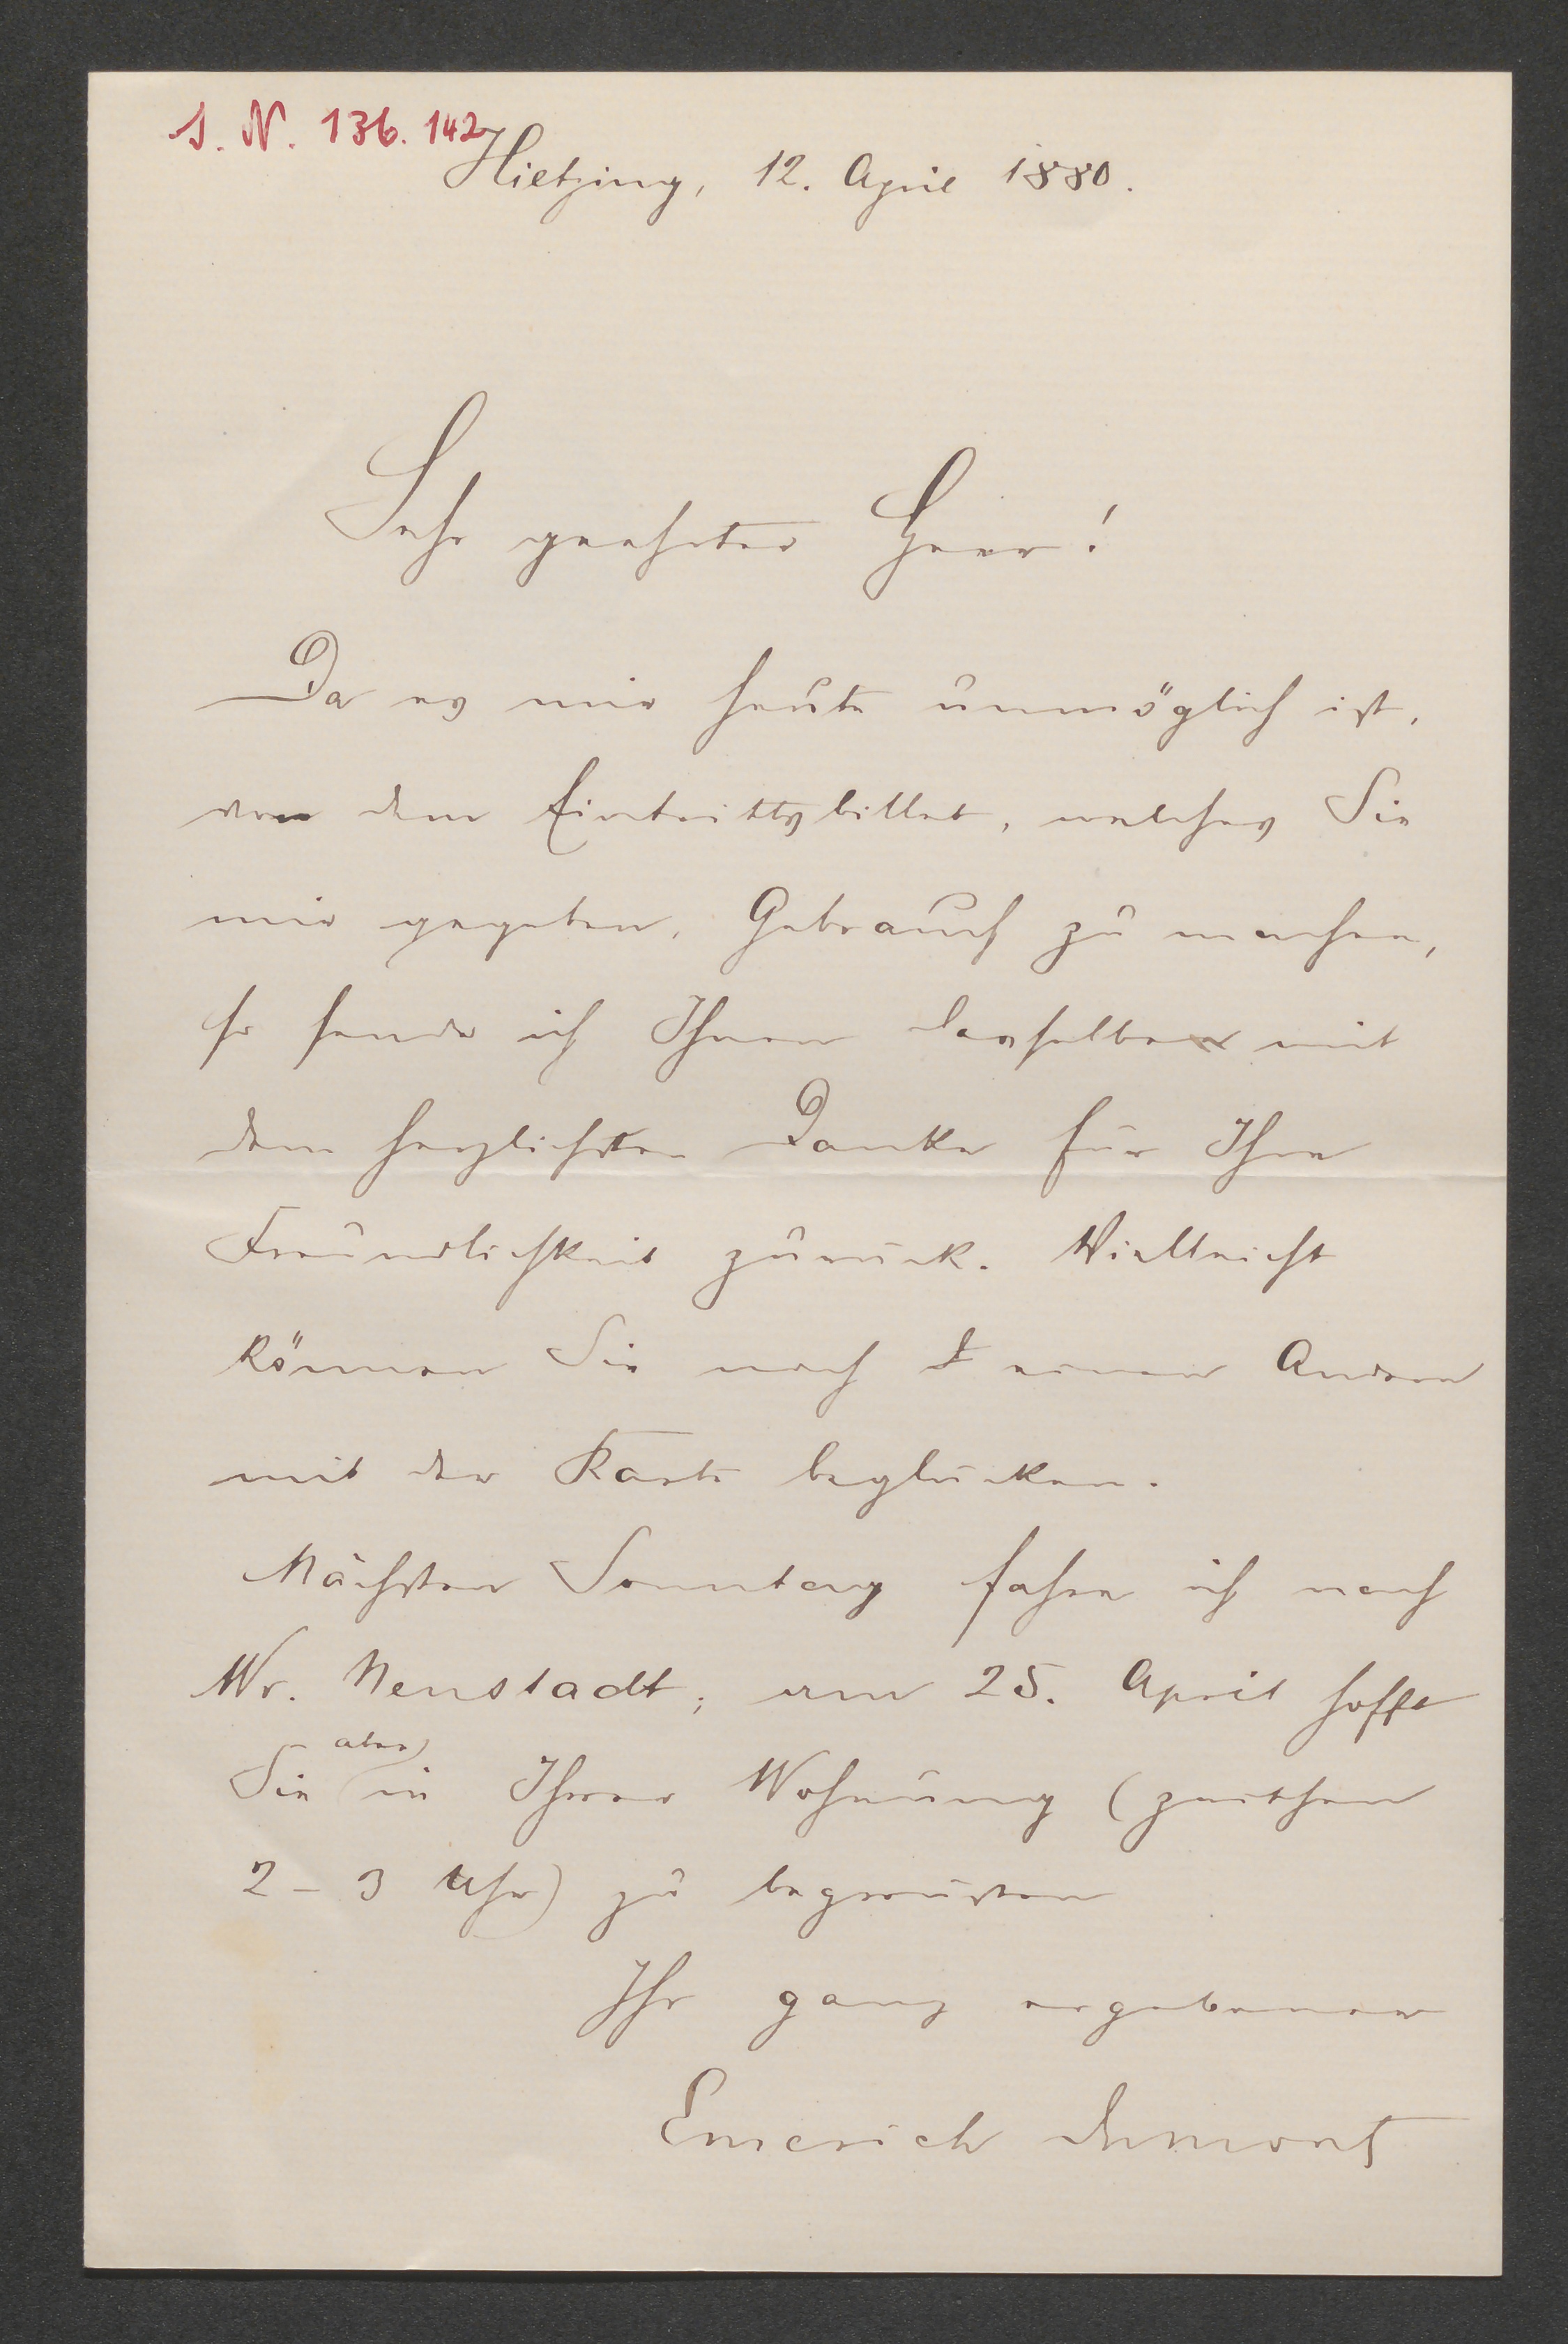 I. N. 136.142
Hietzing, 12. April 1880.
Sehr geehrter Herr!
Da es mir heute unmöglich ist,
von dem Eintrittsbillet, welches Sie
mir gegeben, Gebrauch zu machen,
so sende ich Ihnen dasselbe mit
dem herzlichsten Danke für Ihre
Freundlichkeit zurück. Vielleicht
können Sie noch einen Andern
mit der Karte beglücken.
Nächsten Sonntag fahre ich nach
Wr. Neustadt; am 25. April hofft
Sie aber in Ihrer Wohnung (zwischen
2 – 3 Uhr) zu begrüßen
Ihr ganz ergebener
Emerich